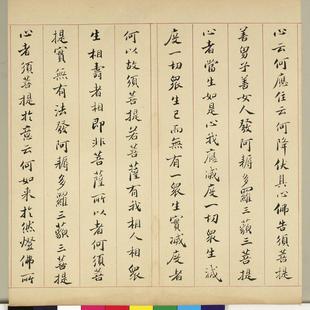 心云何應住云何降伏其心佛告須菩提
善男子善女人發阿耨多羅三藐三菩提
心者當生如是心我應滅度一切眾生滅
度一切眾生已而無有一眾生實滅度者
何以故須菩提若菩薩有我相人相眾
生相壽者相即非菩薩所以者何須菩
提實無有法發阿耨多羅三藐三菩提
心者須菩提於意云何如來於然燈佛所